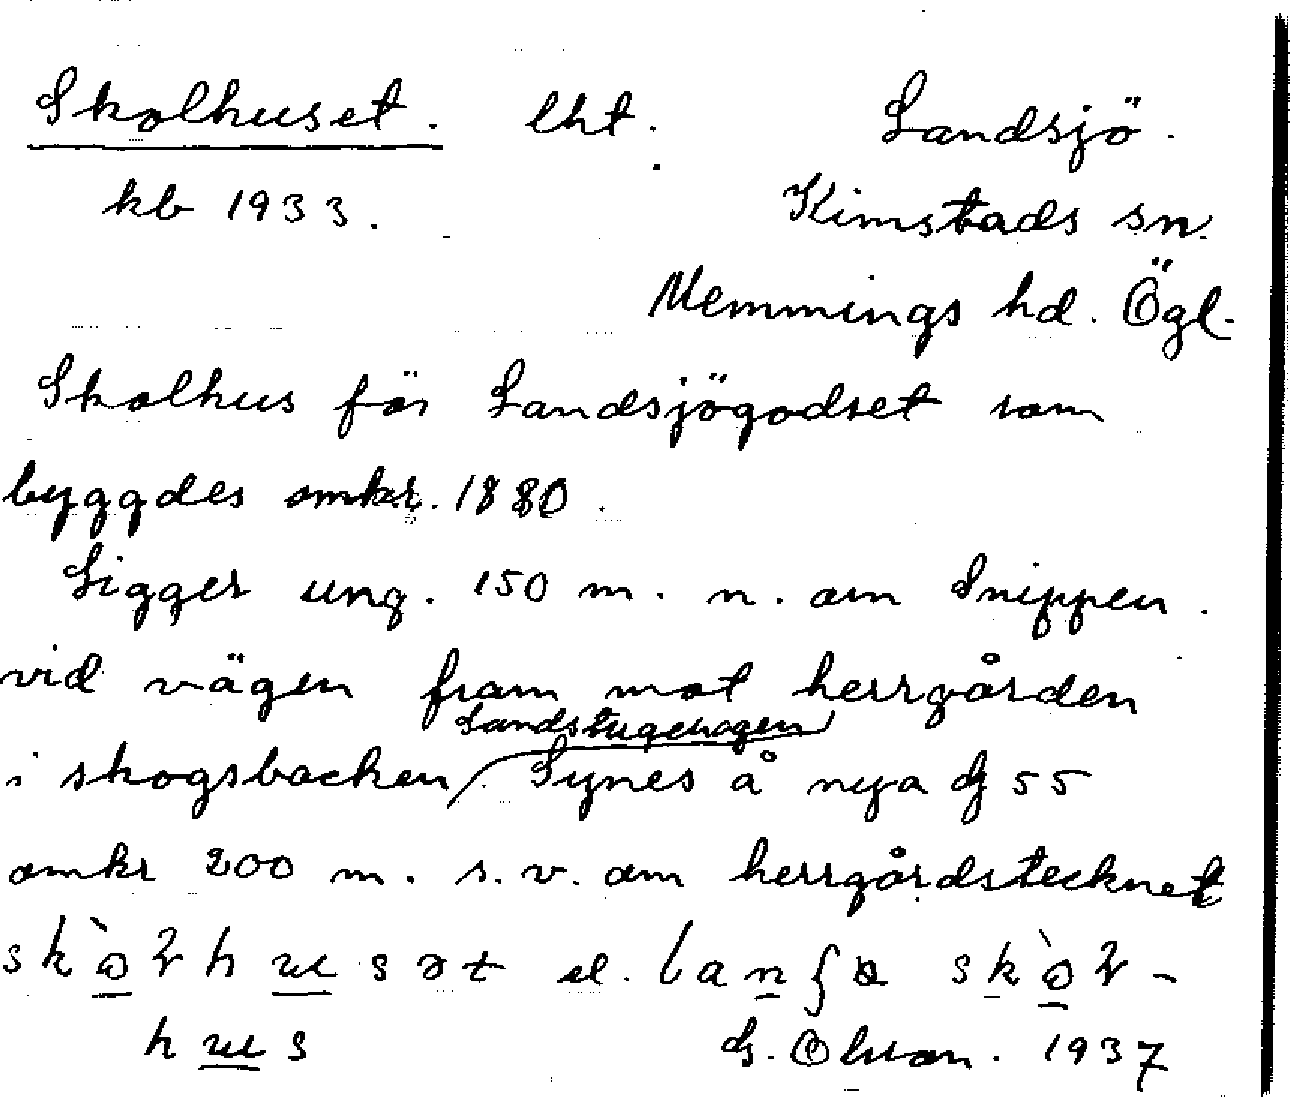 Skolhuset. lht. Landsjö.
kb 1933. Kimstads sn.
Memmings hd. Ögl.
Skolhus för Landsjögodset som
byggdes omkr. 1880.
Ligger ung. 150 m. n. om Snippen.
vid vägen fram mot herrgården
Landstugehagen
i skogsbacken Synes å nya 55
omkr 200 m. s.v. om herrgårdstecknet
el.
G. Olsson. 1937